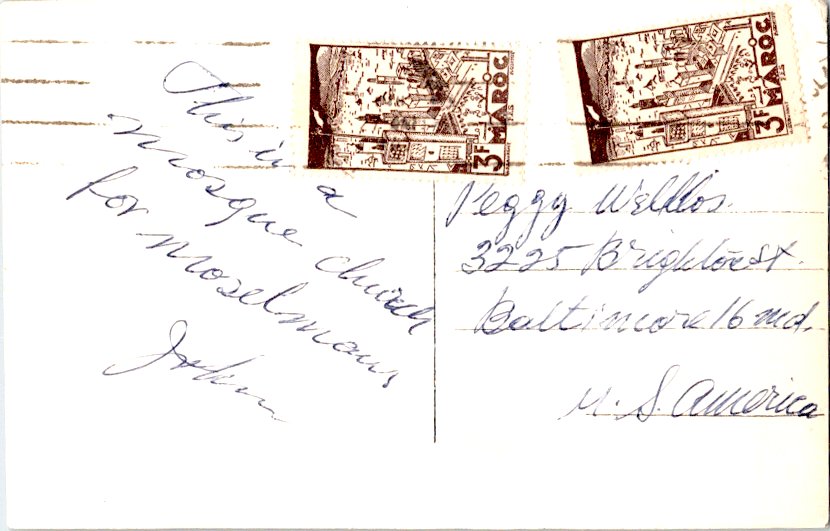 This is a
mosque church
for moselmans
John
3F MAROC
3F MAROC
Peggy
3225 Brighton St.
Baltimore 16 Md.
U. S. America